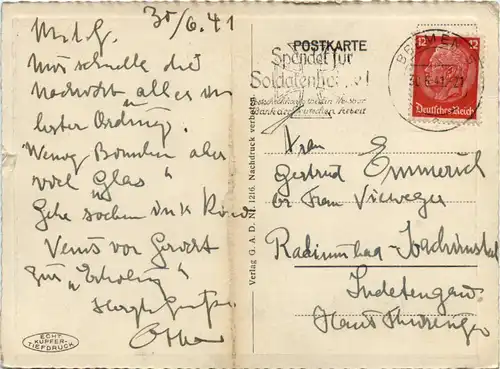 30/6.41
M. l. G.
Nur schnelle die
Nachricht alles in
bester Ordnung.
Wenig Bomben aber
viel "Glas"
Gehe soeben
vor Gericht
zur "Erholung"
Herzl. Grüße
Otto
ECHT
KUPFER-
TIEFDRUCK
Verlag G. A. D. Nr. 1216. Nachdruck verboten.
POSTKARTE
Spendet für
BREMEN
30.6.41
12 12
Deutsches Reich
Frau
Gertrud Emmerich
bei Frau Vieweger
Radiumbad - Joachimsthal
Sudetengau.
Haus Thüringen